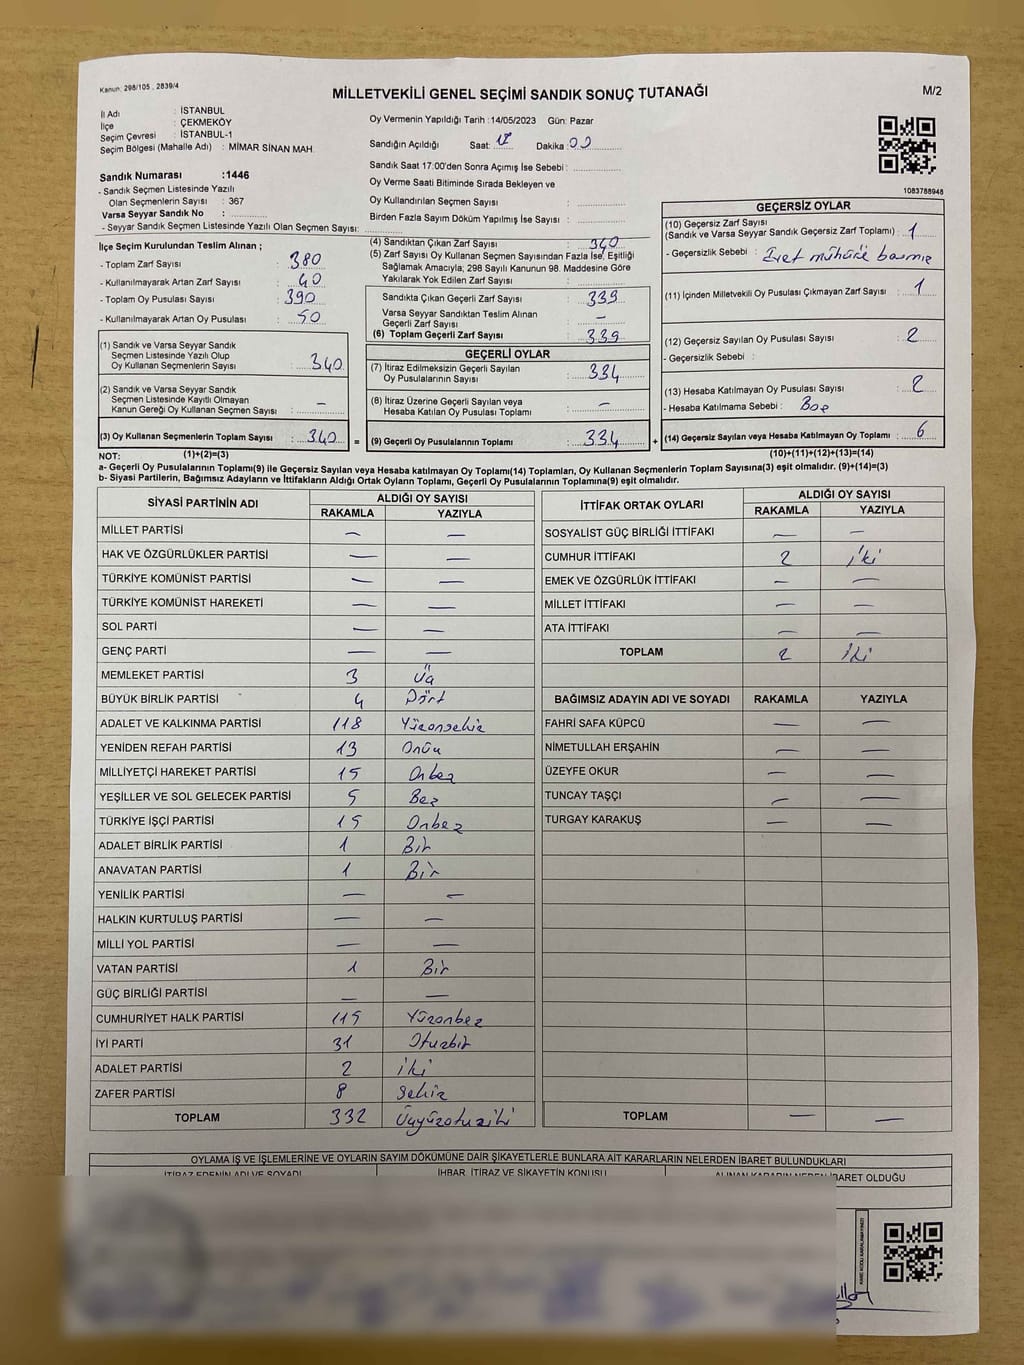 Kanun: 298/105 , 2839/4
MİLLETVEKİLİ GENEL SEÇİMİ SANDIK SONUÇ TUTANAĞI
M/2
İl Adı : İSTANBUL
İlçe : ÇEKMEKÖY
Seçim Çevresi : İSTANBUL-1
Seçim Bölgesi (Mahalle Adı) : MİMAR SİNAN MAH.
Sandık Numarası :1446
- Sandık Seçmen Listesinde Yazılı
Olan Seçmenlerin Sayısı : 367
Varsa Seyyar Sandık No :
- Seyyar Sandık Seçmen Listesinde Yazılı Olan Seçmen Sayısı:
Oy Vermenin Yapıldığı Tarih :14/05/2023 Gün: Pazar
Sandığın Açıldığı Saat: 17 Dakika: 00
Sandık Saat 17:00'den Sonra Açımış İse Sebebi :
Oy Verme Saati Bitiminde Sırada Bekleyen ve
Oy Kullandırılan Seçmen Sayısı :
Birden Fazla Sayım Döküm Yapılmış İse Sayısı :
1083788948
İlçe Seçim Kurulundan Teslim Alınan ;
- Toplam Zarf Sayısı : 380
- Kullanılmayarak Artan Zarf Sayısı : 40
- Toplam Oy Pusulası Sayısı : 390
- Kullanılmayarak Artan Oy Pusulası : 50
(1) Sandık ve Varsa Seyyar Sandık
Seçmen Listesinde Yazılı Olup
Oy Kullanan Seçmenlerin Sayısı : 340
(2) Sandık ve Varsa Seyyar Sandık
Seçmen Listesinde Kayıtlı Olmayan
Kanun Gereği Oy Kullanan Seçmen Sayısı : —
(3) Oy Kullanan Seçmenlerin Toplam Sayısı : 340 =
(4) Sandıktan Çıkan Zarf Sayısı : 340
(5) Zarf Sayısı Oy Kullanan Seçmen Sayısından Fazla İse, Eşitliği
Sağlamak Amacıyla; 298 Sayılı Kanunun 98. Maddesine Göre
Yakılarak Yok Edilen Zarf Sayısı :
Sandıkta Çıkan Geçerli Zarf Sayısı : 339
Varsa Seyyar Sandıktan Teslim Alınan
Geçerli Zarf Sayısı : —
(6) Toplam Geçerli Zarf Sayısı : 339
GEÇERLİ OYLAR
(7) İtiraz Edilmeksizin Geçerli Sayılan
Oy Pusulalarının Sayısı : 334
(8) İtiraz Üzerine Geçerli Sayılan veya
Hesaba Katılan Oy Pusulası Toplamı : —
(9) Geçerli Oy Pusulalarının Toplamı : 334 +
GEÇERSİZ OYLAR
(10) Geçersiz Zarf Sayısı
(Sandık ve Varsa Seyyar Sandık Geçersiz Zarf Toplamı) : 1
- Geçersizlik Sebebi : Evet mührü basmış
(11) İçinden Milletvekili Oy Pusulası Çıkmayan Zarf Sayısı : 1
(12) Geçersiz Sayılan Oy Pusulası Sayısı : 2
- Geçersizlik Sebebi :
(13) Hesaba Katılmayan Oy Pusulası Sayısı : 2
- Hesaba Katılmama Sebebi : Boş
(14) Geçersiz Sayılan veya Hesaba Katılmayan Oy Toplamı : 6
NOT: (1)+(2)=(3) (10)+(11)+(12)+(13)=(14)
a- Geçerli Oy Pusulalarının Toplamı(9) ile Geçersiz Sayılan veya Hesaba katılmayan Oy Toplamı(14) Toplamları, Oy Kullanan Seçmenlerin Toplam Sayısına(3) eşit olmalıdır. (9)+(14)=(3)
b- Siyasi Partilerin, Bağımsız Adayların ve İttifakların Aldığı Ortak Oyların Toplamı, Geçerli Oy Pusulalarının Toplamına(9) eşit olmalıdır.
SİYASİ PARTİNİN ADI ALDIĞI OY SAYISI
RAKAMLA YAZIYLA
MİLLET PARTİSİ — —
HAK VE ÖZGÜRLÜKLER PARTİSİ — —
TÜRKİYE KOMÜNİST PARTİSİ — —
TÜRKİYE KOMÜNİST HAREKETİ — —
SOL PARTİ — —
GENÇ PARTİ — —
MEMLEKET PARTİSİ 3 Üç
BÜYÜK BİRLİK PARTİSİ 4 Dört
ADALET VE KALKINMA PARTİSİ 118 Yüzonsekiz
YENİDEN REFAH PARTİSİ 13 Onüç
MİLLİYETÇİ HAREKET PARTİSİ 15 Onbeş
YEŞİLLER VE SOL GELECEK PARTİSİ 5 Beş
TÜRKİYE İŞÇİ PARTİSİ 15 Onbeş
ADALET BİRLİK PARTİSİ 1 Bir
ANAVATAN PARTİSİ 1 Bir
YENİLİK PARTİSİ — —
HALKIN KURTULUŞ PARTİSİ — —
MİLLİ YOL PARTİSİ — —
VATAN PARTİSİ 1 Bir
GÜÇ BİRLİĞİ PARTİSİ — —
CUMHURİYET HALK PARTİSİ 115 Yüzonbeş
İYİ PARTİ 31 Otuzbir
ADALET PARTİSİ 2 iki
ZAFER PARTİSİ 8 Sekiz
TOPLAM 332 Üçyüzotuziki
İTTİFAK ORTAK OYLARI ALDIĞI OY SAYISI
RAKAMLA YAZIYLA
SOSYALİST GÜÇ BİRLİĞİ İTTİFAKI — —
CUMHUR İTTİFAKI 2 iki
EMEK VE ÖZGÜRLÜK İTTİFAKI — —
MİLLET İTTİFAKI — —
ATA İTTİFAKI — —
TOPLAM 2 İki
BAĞIMSIZ ADAYIN ADI VE SOYADI RAKAMLA YAZIYLA
FAHRİ SAFA KÜPCÜ — —
NİMETULLAH ERŞAHİN — —
ÜZEYFE OKUR — —
TUNCAY TAŞÇI — —
TURGAY KARAKUŞ — —
TOPLAM — —
OYLAMA İŞ VE İŞLEMLERİNE VE OYLARIN SAYIM DÖKÜMÜNE DAİR ŞİKAYETLERLE BUNLARA AİT KARARLARIN NELERDEN İBARET BULUNDUKLARI
İTİRAZ EDENİN ADI VE SOYADI İHBAR, İTİRAZ VE ŞİKAYETİN KONUSU ALINAN KARARIN NEDEN İBARET OLDUĞU